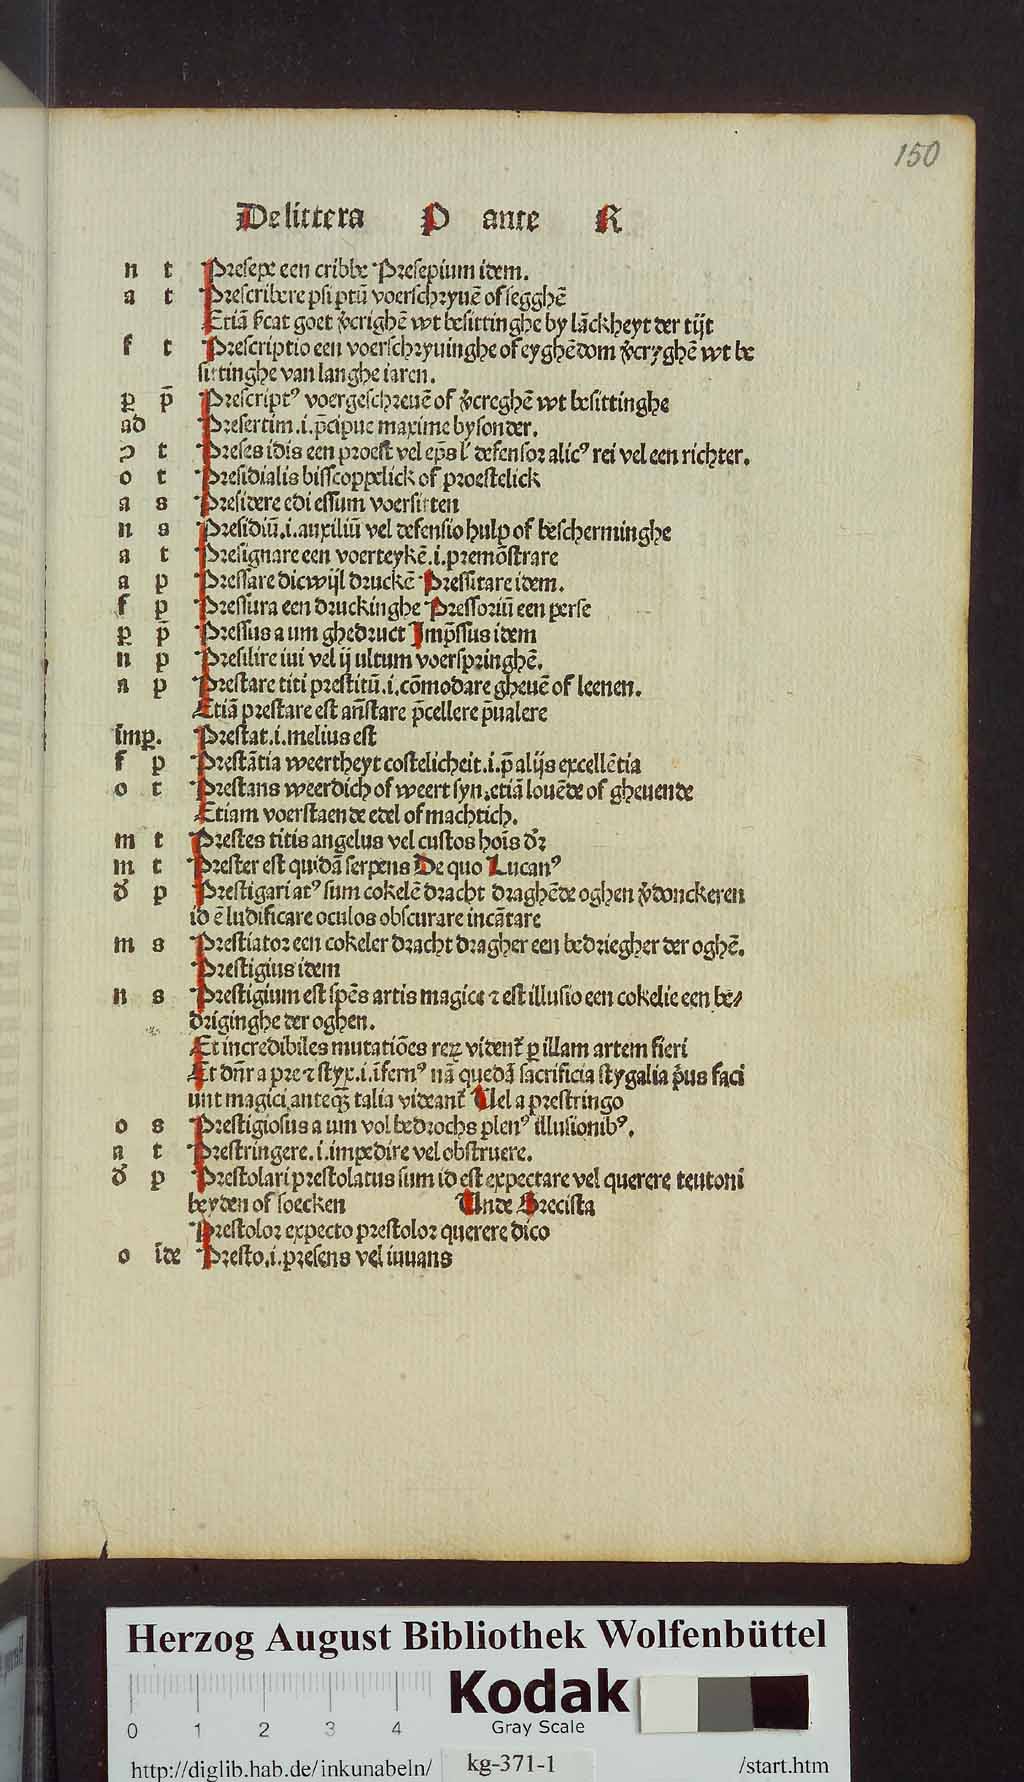 150
De littera P ante R
n t Presepe een cribbe Presepium idem.
a t Prescribere psi ptū voerschryuē of segghē
Etiā sͥcat goet v̄crighē wt besittinghe by lāckheyt der tijt
f t Prescriptio een voerschryuinghe of eyghēdom v̄cryghē wt be
sittinghe van langhe iaren.
ꝑ p̄ Prescriptꝰ voergeschreuē of v̄creghē wt besittinghe
ad Presertim .i. p̄cipue maxime bysonder.
ↄ t Preses idis een proest vel ep̄s lʼ defensor alicꝰ rei vel een richter.
o t Presidialis bisscoppelick of proestelick
a s Presidere edi essum voersitten
n s Presidiū .i. auxiliū vel defensio hulp of bescherminghe
a t Presignare een voerteykē .i. premōstrare
a p Pressare dicwijl druckē Pressitare idem.
f p Pressura een druckinghe Pressoriū een perse
ꝑ p̄ Pressus a um ghedruct Imp̄ssus idem
n p Presilire iui vel ij ultum voerspringhē.
a p Prestare titi prestitū .i. cōmodare gheuē of leenen.
Etiā prestare est an̄stare p̄cellere p̄ualere
imꝑ. Prestat .i. melius est
f p Prestātia weertheyt costelicheit .i. p̄ alijs excellētia
o t Prestans weerdich of weert syn. etiā louēde of gheuende
Etiam voerstaende edel of machtich.
m t Prestes titis angelus vel custos hoīs dʼr
m t Prester est quidā serpens De quo Lucanꝰ
dʼ p Prestigari atꝰ sum cokelē dracht draghēde oghen v̄donckeren
id ē ludificare oculos obscurare incātare
m s Prestiator een cokeler dracht dragher een bedriegher der oghē.
Prestigius idem
n s Prestigium est spēs artis magice ⁊ est illusio een cokelie een be/
driginghe der oghen.
Et incredibiles mutatiōes reꝝ vidентʼ ꝑ illam artem fieri
Et dn̄r a pre ⁊ styx .i. īfernꝰ nā quedā sacrificia stygalia p̄us faci
unt magici anteqꝫ talia videantʼ Uel a prestringo
o s Prestigiosus a um vol bedrochs plenꝰ illusionibꝰ.
a t Prestringere .i. impedire vel obstruere.
dʼ p Prestolari prestolatus sum id est expectare vel querere teutoni
beyden of soecken Unde Grecista
Prestolor expecto prestolor querere dico
o īde Presto .i. presens vel iuuans
Herzog August Bibliothek Wolfenbüttel
0 1 2 3 4
Kodak
Gray Scale
http://diglib.hab.de/inkunabeln/ kg-371-1 /start.htm